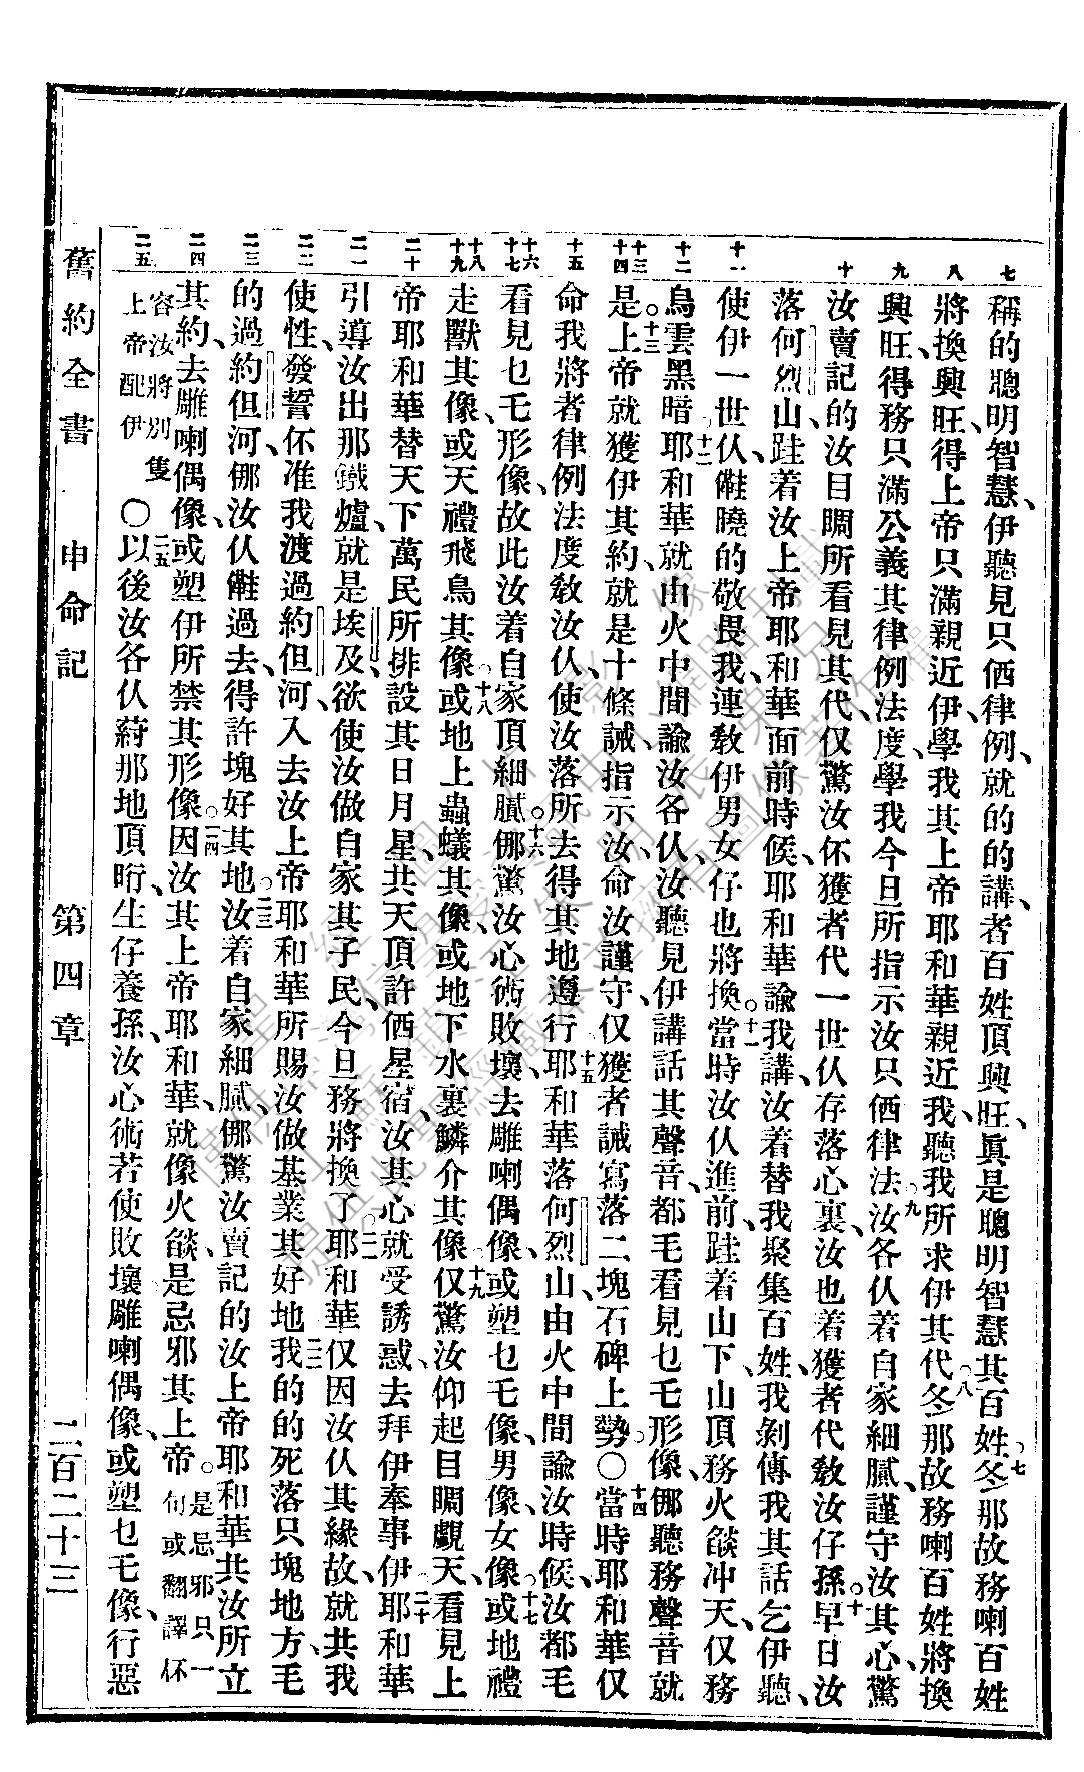 七
稱的聰明智慧、伊聽見只俩律例、就的的講、者百姓頂興旺、眞是聰明智慧其百姓。七冬那故務喇百姓
八
將換興旺、得上帝只滿親近伊、學我其上帝耶和華親近我、聽我所求伊其代。八冬那故務喇百姓、將換
九
興旺、得務只滿公義其律例法度、學我今旦所指示汝只俩律法。九汝各仈着自家細膩、謹守汝其心、驚
十
汝賣記的汝目睭所看見其代、仅驚汝伓獲者代一世仈存落心裏、汝也着獲者代敎汝仔孫。十早日汝
落何烈山、跬着汝上帝耶和華面前時候、耶和華諭我講、汝着替我聚集百姓、我剝傳我其話乞伊聽、
十一
使伊一世仈、㒕曉的敬畏我、連敎伊男女仔也將換。十一當時汝仈進前、跬着山下、山頂務火燄冲天、仅務
十二
烏雲黑暗。十二耶和華就由火中間諭汝各仈、汝聽見伊講話其聲音、都毛看見乜乇形像、㑚聽務聲音就
十三 十四
是。十三上帝就獲伊其約、就是十條誡、指示汝、命汝謹守、仅獲者誡寫落二塊石碑上勢。〇十四當時耶和華仅
十五
命我將者律例法度敎汝仈、使汝落所去得其地遵行。十五耶和華落何烈山、由火中間諭汝時候、汝都毛
十六 十七
看見乜乇形像、故此汝着自家頂細膩。十六㑚驚汝心術敗壞、去雕喇偶像、或塑乜乇像、男像、女像。十七或地禮
十八 十九
走獸其像、或天禮飛鳥其像。十八或地上蟲蟻其像、或地下水裏鱗介其像。十九仅驚汝仰起目睭覷天、看見上
二十
帝耶和華替天下萬民所排設其日月星、共天頂許俩星宿、汝其心就受誘惑、去拜伊奉事伊。二十耶和華
二一
引導汝出那鐵爐、就是埃及、欲使汝做自家其子民、今旦務將換了。二一耶和華仅因汝仈其緣故、就共我
二二
使性、發誓伓准我渡過約但河、入去汝上帝耶和華所賜汝做基業其好地。二二我的的死落只塊地方、毛
二三
的過約但河、㑚汝仈㒕過去、得許塊好其地。二三汝着自家細膩、㑚驚汝賣記的汝上帝耶和華共汝所立
二四
其約、去雕喇偶像、或塑伊所禁其形像。二四因汝其上帝耶和華、就像火燄、是忌邪其上帝。是忌邪只一句或翻譯伓
二五
容汝將別隻上帝配伊 〇二五以後汝各仈蒔那地頂㫰、生仔養孫、汝心術若使敗壞、雕喇偶像、或塑乜乇像、行惡
舊約全書 申命記 第四章 二百二十三